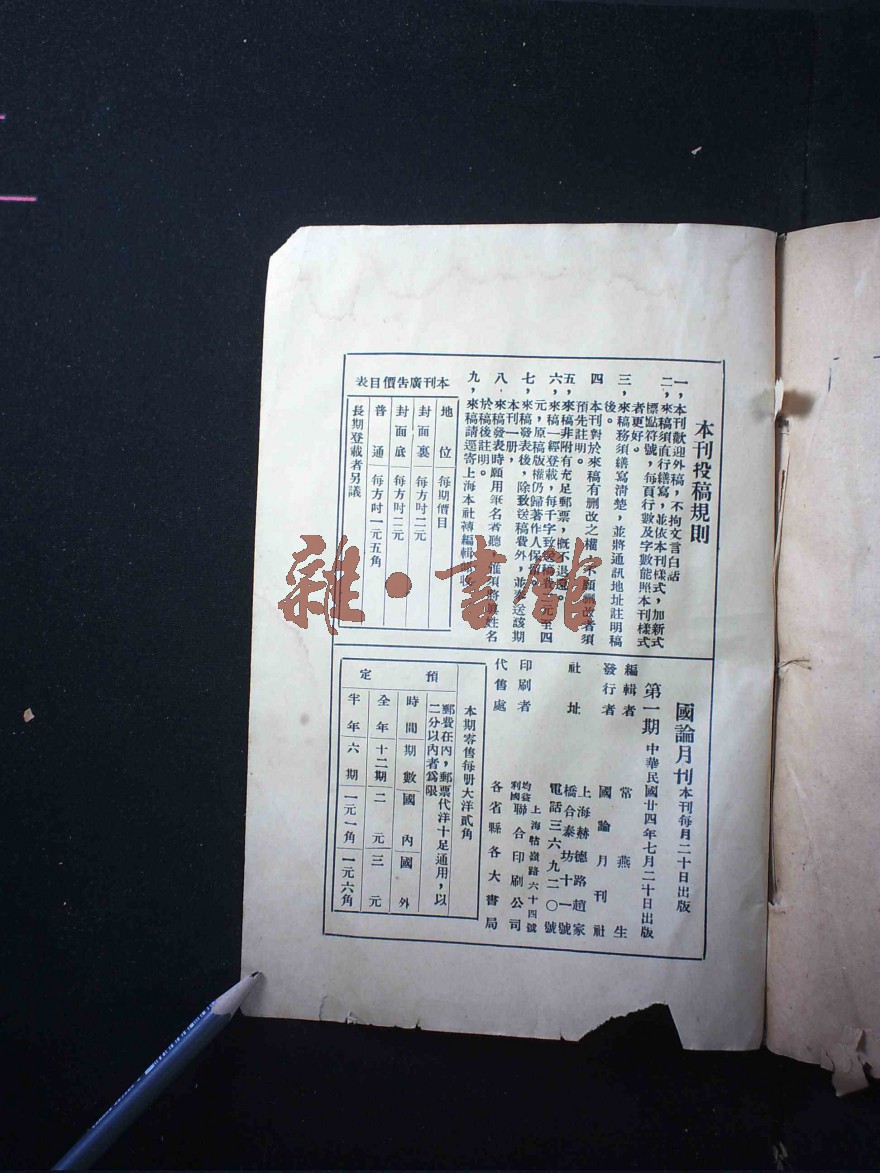 本刊投稿規則
一，本刊歡迎外稿，不拘文言白話
二，來稿須直行繕寫，並依本刊樣式，加新式
標點符號，每頁行數及字數能照本刊樣式
者更好。
三，來稿務須繕寫清楚，並將通訊地址註明稿
後。
四　本刊對於來稿有刪改之權，不願刪改者須
預先註明。
五，來稿非附有充足郵票，概不退還。
六，來稿一經登載，每千字致送稿費一元至四
元，原稿版權仍歸著作人保留。
七，來稿發表後，除致送稿費外，並奉送該期
本刊一册，
八　來稿發表時願用筆名者聽，惟須將真姓名
於稿後註明。
九，來稿請逕寄上海本社轉編輯部收
本刊廣告價目表
地位　每期價目
封面裏　每方吋二元
封面底　每方吋二元
普通　每方吋一元五角
長期登載者另議
國論月刊　本刊每月二十日出版
第一期　中華民國廿四年七月二十日出版
編輯者　常燕生
發行者　國論月刊社
社址　上海赫德路趙家
橋合泰坊十一號
電話三六九二〇號
印刷者　均益利國聯合印刷公司
上海牯嶺路六十四號
代售處　各省縣各大書局
本期零售每册大洋貳角
郵費在內，郵票代洋十足通用，以
二分以內者為限
預定
時間　期數　國內　國外
全年　十二期　二元　三元
半年　六期　一元一角　一元六角
雜·書館